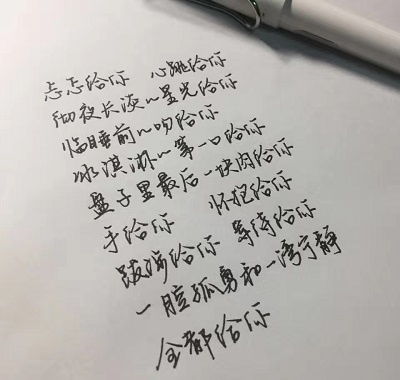 忐忑给你 心跳给你
彻夜长谈的星光给你
临睡前的吻给你
冰淇淋的第一口给你
盘子里最后一块肉给你
手给你 怀抱给你
跋涉给你 等待给你
一腔孤勇和一湾宁静
全都给你